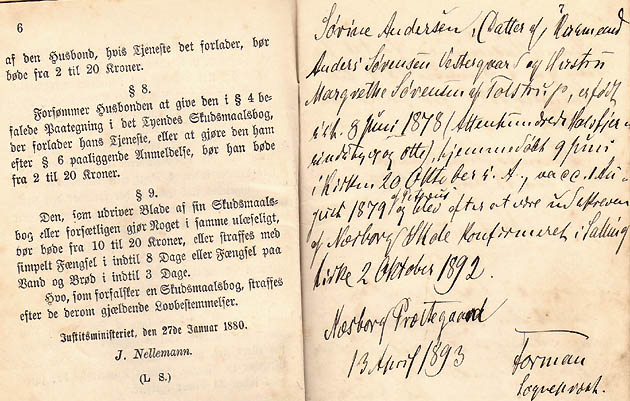 6
af den Husbond, hvis Tjeneste det forlader, bør
bøde fra 2 til 20 Kroner.
§ 8.
Forsømmer Husbonden at give den i § 4 be-
falede Paategning i det Tyendes Skudsmaalsbog,
der forlader hans Tjeneste, eller at gjøre den ham
efter § 6 paaliggende Anmeldelse, bør han bøde
fra 2 til 20 Kroner.
§ 9.
Den, som udriver Blade af sin Skudsmaals-
bog eller forsætligen gjør Noget i samme ulæseligt,
bør bøde fra 10 til 20 Kroner, eller straffes med
simpelt Fængsel i indtil 8 Dage eller Fængsel paa
Vand og Brød i indtil 3 Dage.
Hvo, som forfalsker en Skudsmaalsbog, straffes
efter de derom gjældende Lovbestemmelser.
Justitsministeriet, den 27de Januar 1880.
J. Nellemann.
(L. S.)
Sørine Andersen, Datter af Huusmand
Anders Sørensen Vestergaard og Kirstin
Margrethe Sørensen af Tolstrup, er født
d. 9 Juni 1878 (Attenhundrede Halvfjer-
sindstyve og otte), hjemmedøbt 9 Juni
i Kirken 20 Oktober s. A., vacc. Au-
gust 1879 og blev efter at være undervist
af Næsborg Skole Konfirmeret i Salling
Kirke 2 Oktober 1892.
Næsborg Præstegaard
13 April 1893
Forman
Sognepræst.